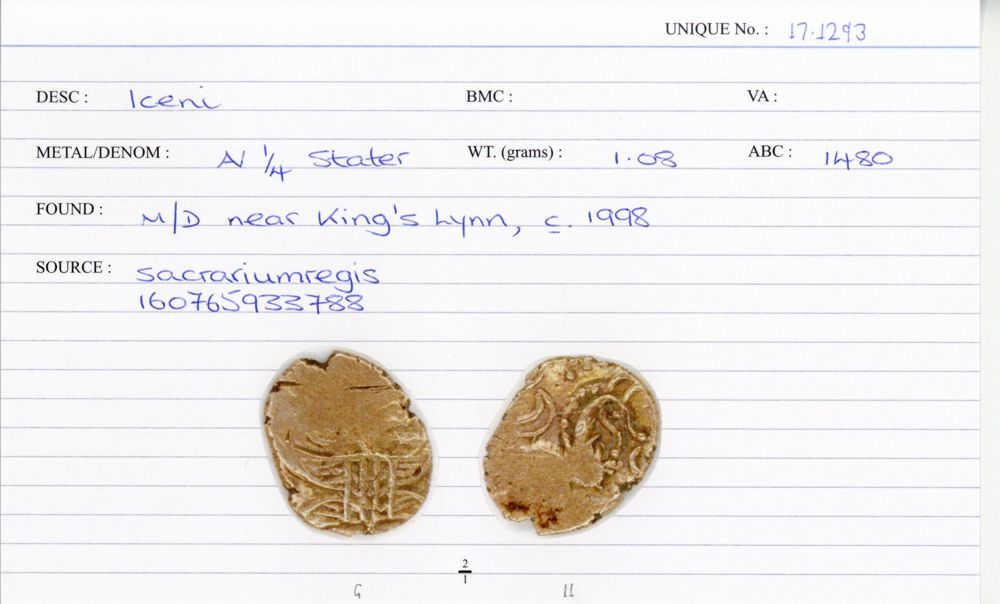 UNIQUE No. : 17.1293
DESC : Iceni BMC : VA :
METAL/DENOM : AV 1/4 Stater WT. (grams) : 1.08 ABC : 1480
FOUND : M/D near King's Lynn, c. 1998
SOURCE : sacrariumregis
160765933788
2/1
G 11